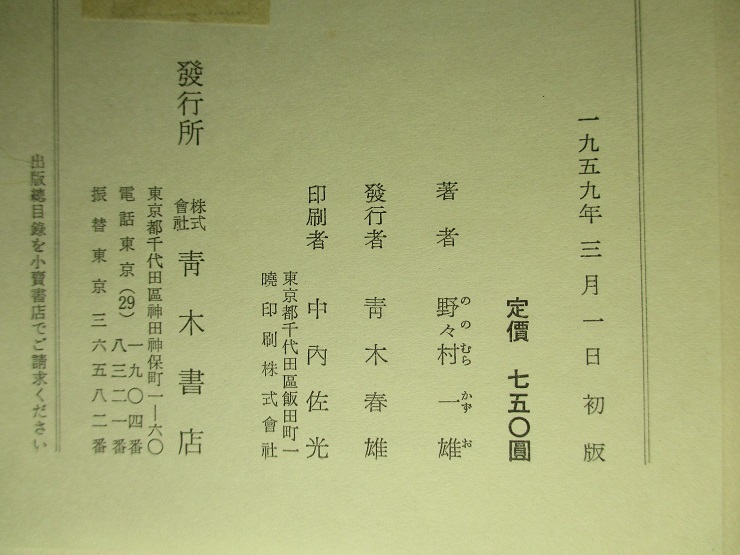 一九五九年三月一日初版
定價 七五〇圓
著者 野々村一雄
ののむらかずお
發行者 靑木春雄
印刷者 中內佐光
東京都千代田區飯田町一
曉印刷株式會社
發行所 株式會社 靑木書店
東京都千代田區神田神保町一―六〇
電話東京(29)一九〇四番
八三二一番
振替東京三六五八二番
出版總目錄を小賣書店でご請求ください